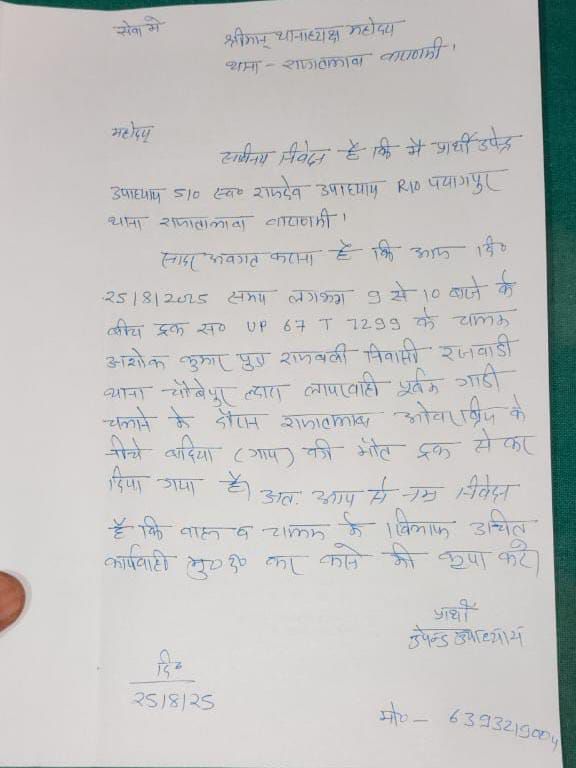 सेवा मे
श्रीमान् थानाध्यक्ष महोदय
थाना - राजातालाब वाराणसी।
महोदय
सविनय निवेदन है कि मै प्रार्थी उपेन्द्र
उपाध्याय S/O स्व० रामदेव उपाध्याय R/O पयागपुर
थाना राजातालाब वाराणसी।
सादर अवगत कराना है कि आज दि०
25/8/2025 समय लगभग 9 से 10 बजे के
बीच ट्रक स० UP 67 T 7299 के चालक
अशोक कुमार पुत्र रामबली निवासी रजवाडी
थाना चौबेपुर द्वारा लापरवाही पूर्वक गाडी
चलाने के दौरान राजातालाब ओवर ब्रिज के
नीचे बछिया (गाय) की मौत ट्रक से कर
दिया गया है। अतः आप से नम्र निवेदन
है कि वाहन व चालक के खिलाफ उचित
कार्यवाही मु०अ० कर करने की कृपा करे।
प्रार्थी
उपेन्द्र उपाध्याय
दि०
25/8/25
मो० - 6393219004